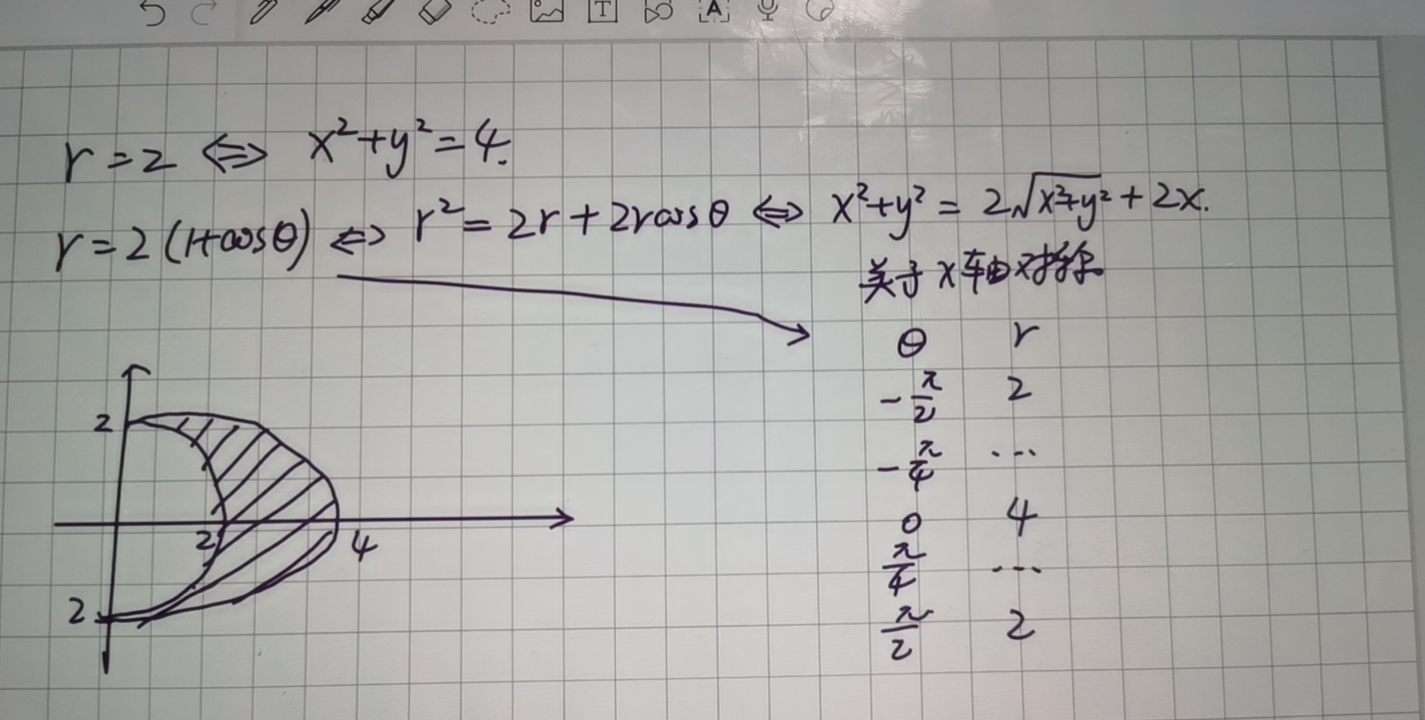 r = 2 ⇔ x²+y² = 4.
r = 2 (1+cosθ) ⇔ r² = 2r + 2rcosθ ⇔ x²+y² = 2√(x²+y²) + 2x.
关于x轴对称
θ r
-π/2 2
-π/4 ...
0 4
π/4 ...
π/2 2
2
2
4
2
T
A